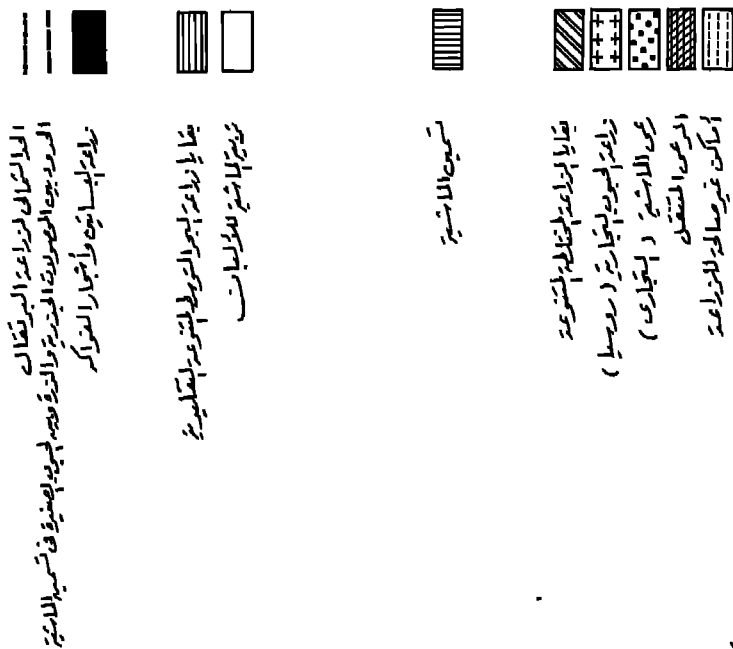 أماكن غير صالحة للزراعة
الرعى المتنقل
رعى الماشية (التجارى)
زراعة الحبوب التجارية (روسيا)
بقايا الزراعة المختلطة المتنوعة
تسمين الماشية
تربية الماشية للألبان
بقايا زراعة البحر المتوسط المتنوعة التقليدية
زراعة البساتين وأشجار الفواكه
الحدود بين المحصولات الجذرية والذرة وبين الحبوب الصغيرة فى تسمين الماشية
الحد الشمالى لزراعة البرتقال